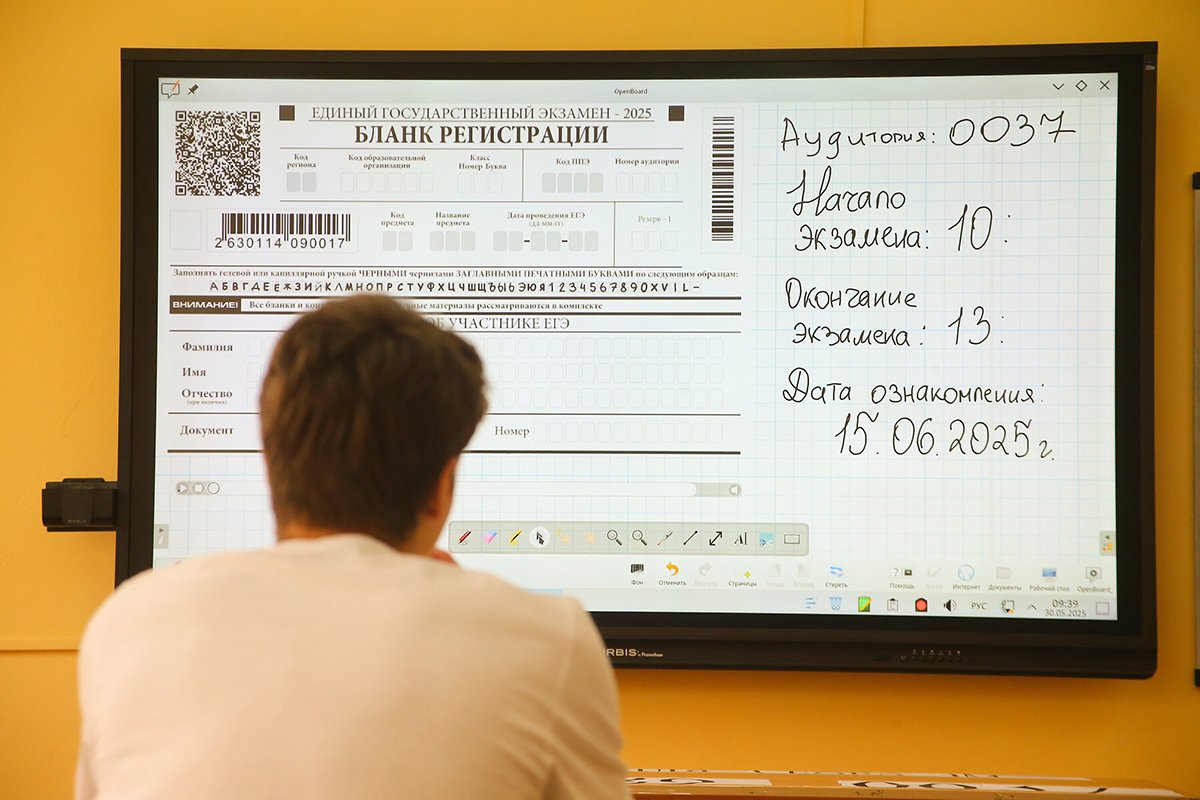 OpenBoard
ЕДИНЫЙ ГОСУДАРСТВЕННЫЙ ЭКЗАМЕН - 2025
БЛАНК РЕГИСТРАЦИИ
Код региона
Код образовательной организации
Класс
Номер Буква
Код ППЭ
Номер аудитории
2 630114 090017
Код предмета
Название предмета
Дата проведения ЕГЭ
(ДД-ММ-ГГ)
Резерв - 1
Заполнять гелевой или капиллярной ручкой ЧЕРНЫМИ чернилами ЗАГЛАВНЫМИ ПЕЧАТНЫМИ БУКВАМИ по следующим образцам:
АБВГДЕЁЖЗИЙКЛМНОПРСТУФХЦЧШЩЪЫЬЭЮЯ1234567890XVIL-
ВНИМАНИЕ! Все бланки и материалы рассматриваются в комплекте
ОБ УЧАСТНИКЕ ЕГЭ
Фамилия
Имя
Отчество
(при наличии)
Документ
Номер
Аудитория: 0037
Начало
экзамена: 10:
Окончание
экзамена: 13:
Дата ознакомления:
15.06.2025 г.
Фон
Отменить
Вернуть
Страницы
Назад
Вперед
Стереть
Помощь
Доска
Интернет
Документы
Рабочий стол
OpenBoard
РУС
09:39
30.05.2025
RBIS by Promethean